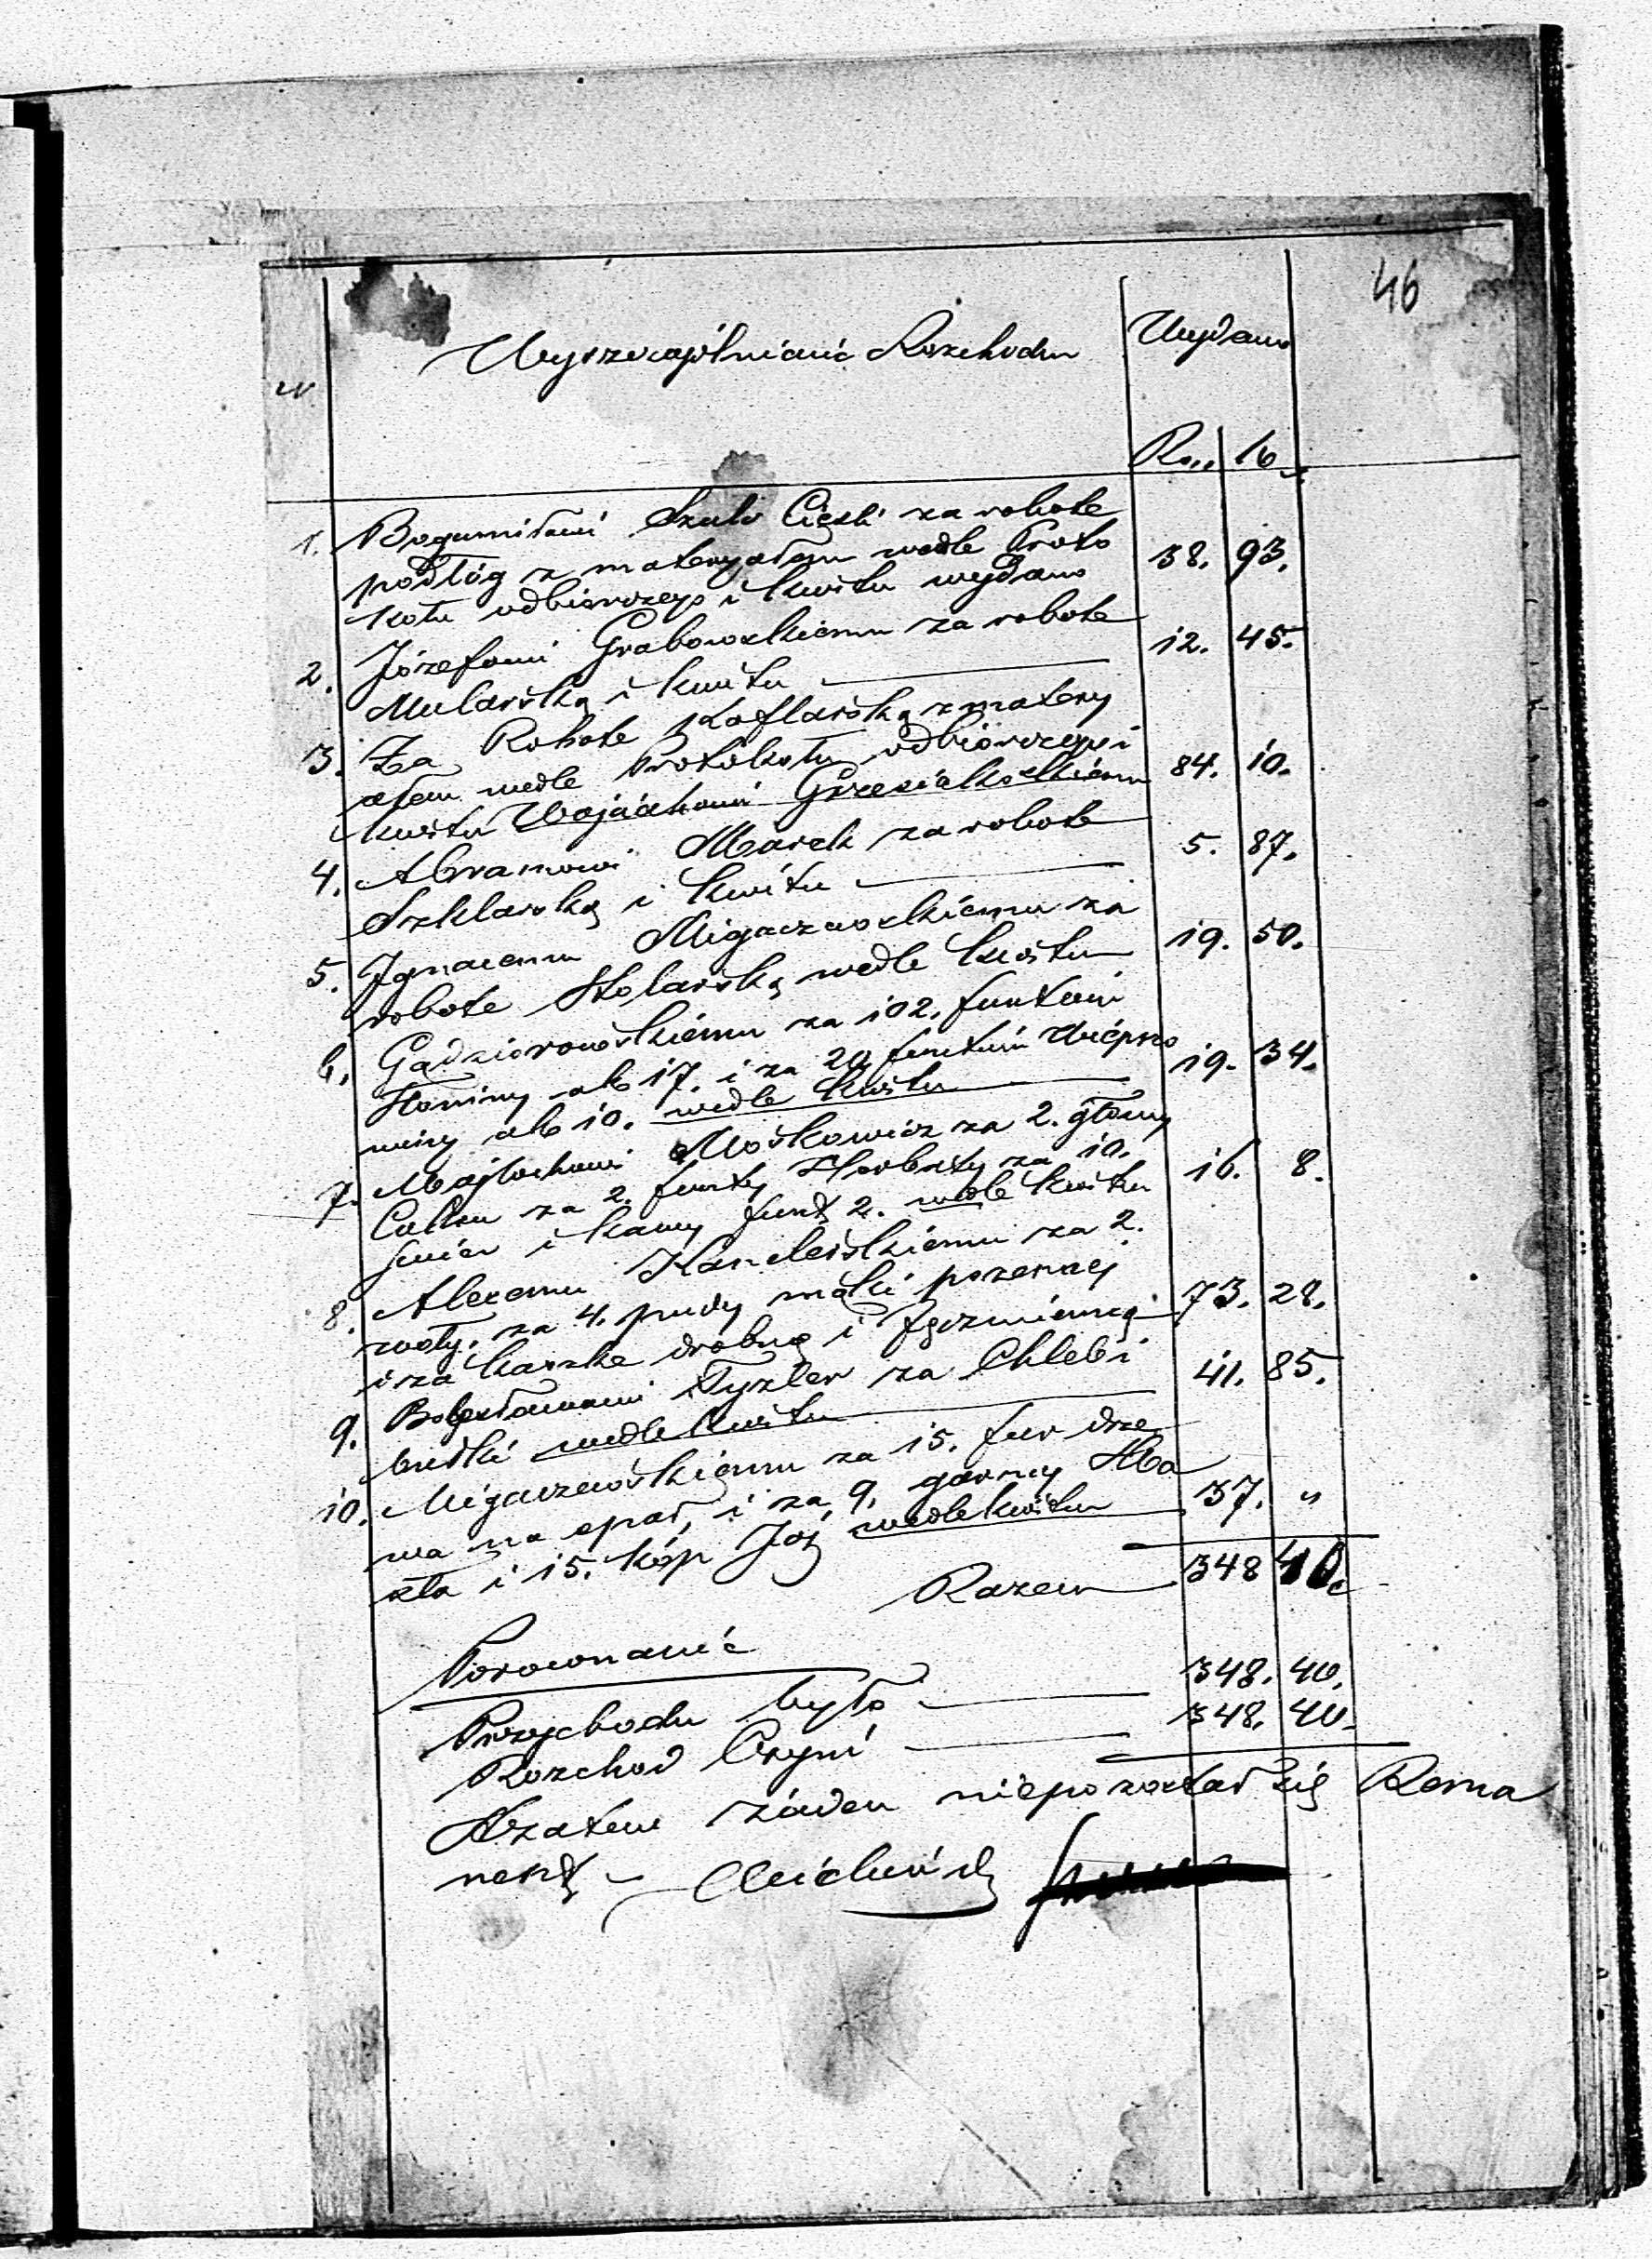 46
N Wyszczególnienie Rozchodu Wydano
Rs. K
1. Bogumiłowi Szulc Cieśli za robote
podłóg z materyałem wedle Proto 38. 93.
kołu odbiorczego i kwitu wydano
2. Józefowi Grabowskiemu za robote 12. 45.
Mularską i kwitu
3. Za Robote Kaflarską z matery
ałem wedle Protokołu odbiorczego i 84. 10.
kwitu Wojciechowi
4. Abramowi Marek za robote 5. 87.
Szklarską i kwitu
5. Ignacemu Migaczewskiemu za 19. 50.
robote Stolarską wedle kwitu
6. Gadziorowskiemu za 102. funtów
Słoniny ak 17. i za 20 funtów Wieprzo 19. 34.
winy ak 10. wedle kwitu
7. Majlochowi Moskowicz za 2. głowy
Cukru za 2. funty Herbaty za 10. 16. 8.
świec i kawy funt 2. wedle kwitu
8. Alexemu za 2.
woły, za 4. pudy mąki pszennej 73. 28.
i za kaszke drobną i Jęczmienną
9. Bolesławowi Tyzler za Chleb i 41. 85.
bułki wedle kwitu
10. Migaczewskiemu za 15. fur drze
wa na opał, i za 9. garncy Ma 37. "
sła i 15. kóp Jaj wedle kwitu
Razem 348 40
Porownanie
Przychodu było 348. 40.
Rozchod Czyni 348. 40.
A zatem żaden niepozostał się Rema
nent